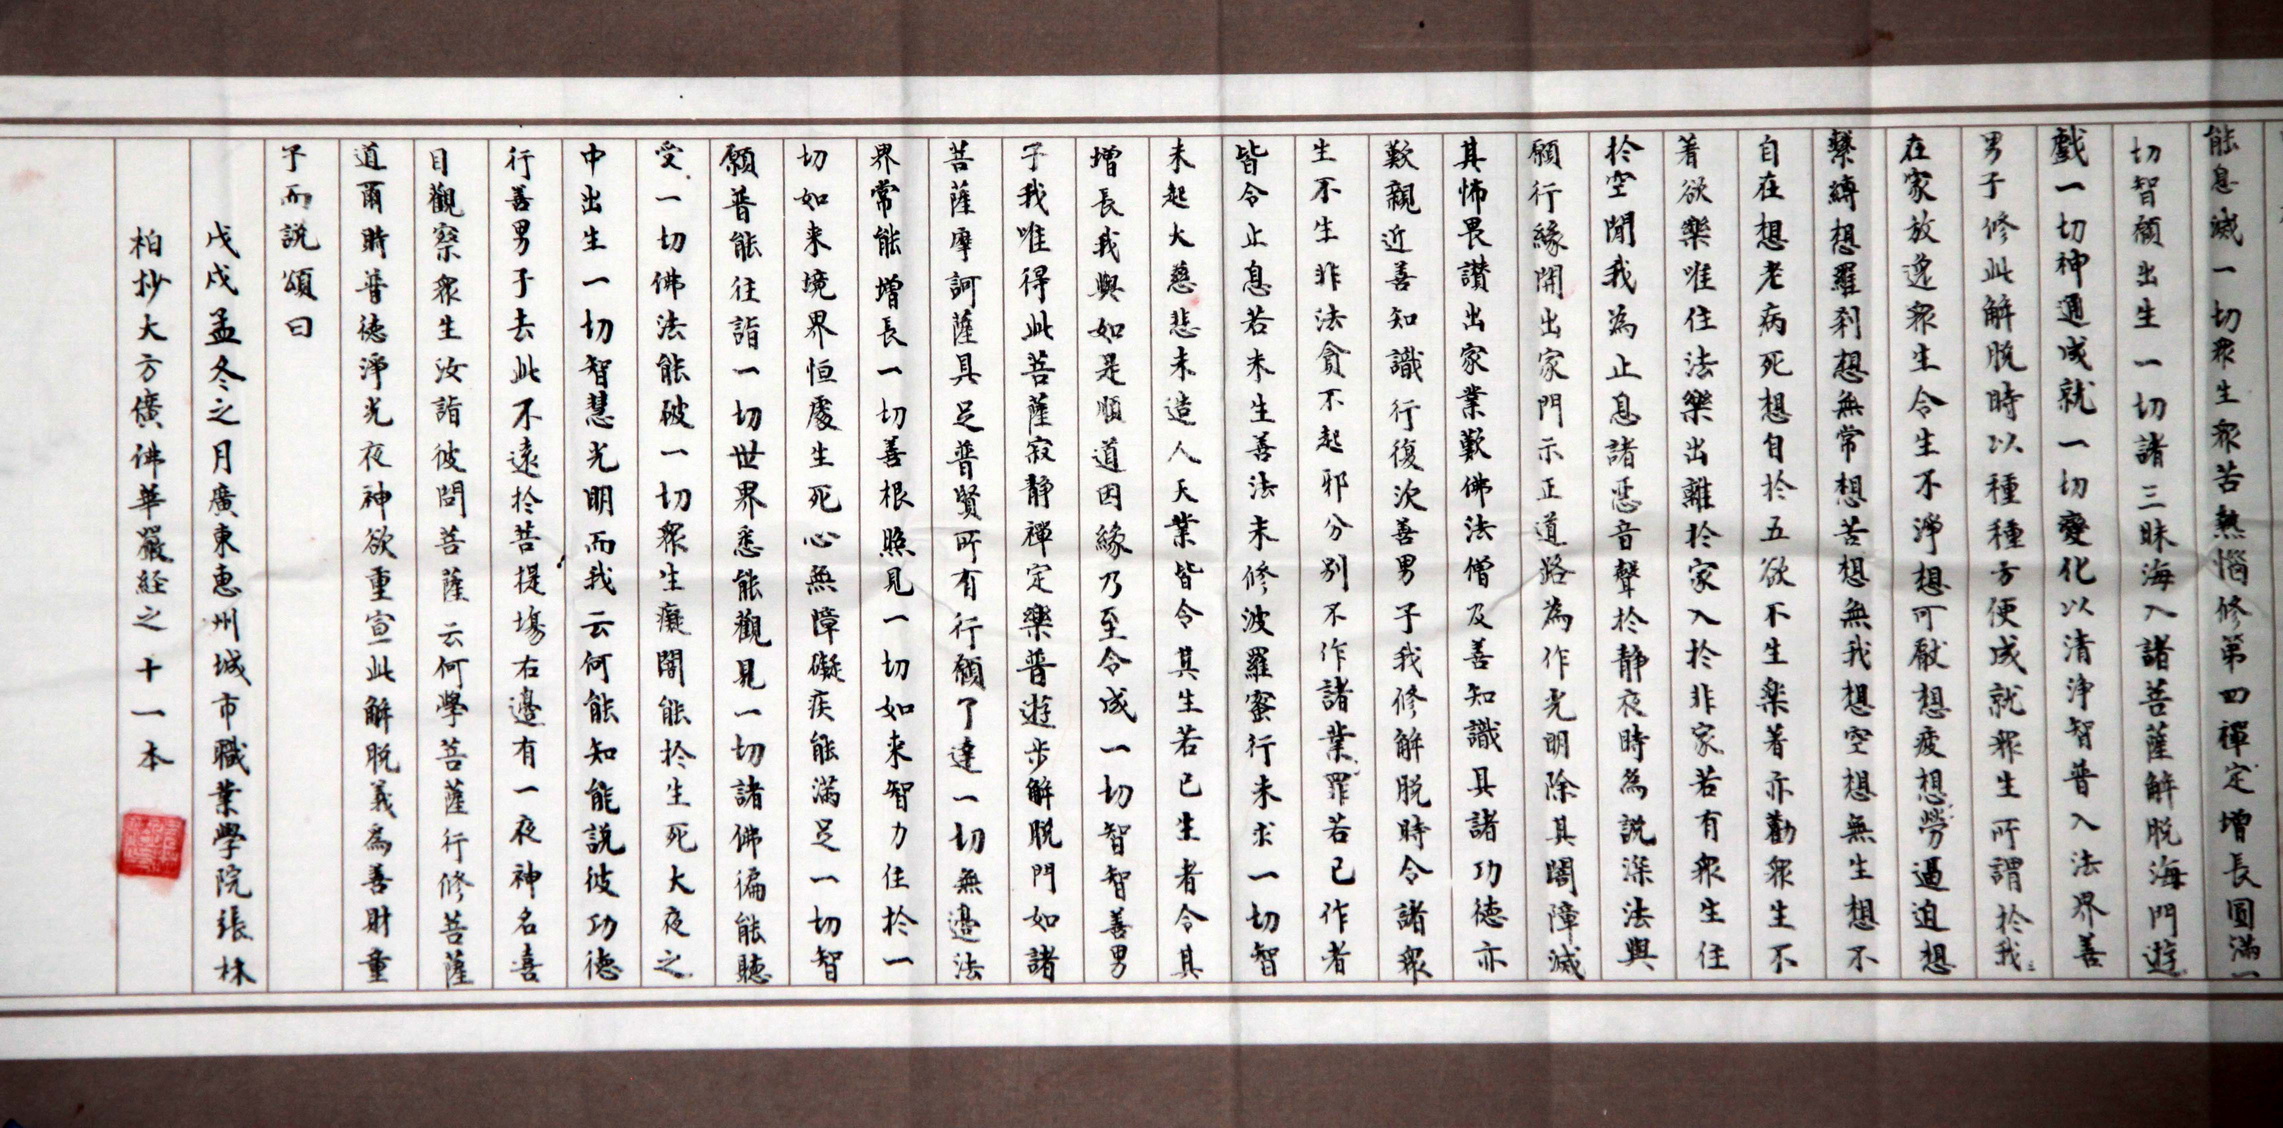 能息滅一切眾生眾苦熱惱修第四禪定增長圓滿一
切智願出生一切諸三昧海入諸菩薩解脫海門遊
戲一切神通成就一切變化以清淨智普入法界善
男子修此解脫時以種種方便成就眾生所謂於我
在家放逸眾生令生不淨想可厭想疲想勞逼迫想
繫縛想羅刹想無常想苦想無我想空想無生想不
自在想老病死想自於五欲不生樂著亦勸眾生不
著欲樂唯住法樂出離於家入於非家若有眾生住
於空閒我為止息諸惡音聲於靜夜時為說深法與
願行緣開出家門示正道路為作光明除其闇障滅
其怖畏讚出家業歎佛法僧及善知識具諸功德亦
歎親近善知識行復次善男子我修解脫時令諸眾
生不生非法貪不起邪分別不作諸業罪若已作者
皆令止息若未生善法未修波羅蜜行未求一切智
未起大慈悲未造人天業皆令其生若已生者令其
增長我與如是順道因緣乃至令成一切智智善男
子我唯得此菩薩寂靜禪定樂普遊步解脫門如諸
菩薩摩訶薩具足普賢所有行願了達一切無邊法
界常能增長一切善根照見一切如來智力住於一
切如來境界恒處生死心無障礙疾能滿足一切智
願普能往詣一切世界悉能觀見一切諸佛徧能聽
受一切佛法能破一切眾生癡闇能於生死大夜之
中出生一切智慧光明而我云何能知能說彼功德
行善男子去此不遠於菩提場右邊有一夜神名喜
目觀察眾生汝詣彼問菩薩云何學菩薩行修菩薩
道爾時普德淨光夜神欲重宣此解脫義為善財重
子而說頌曰
戊戌孟冬之月廣東惠州城市職業學院張林
柏抄大方廣佛華嚴經之十一本